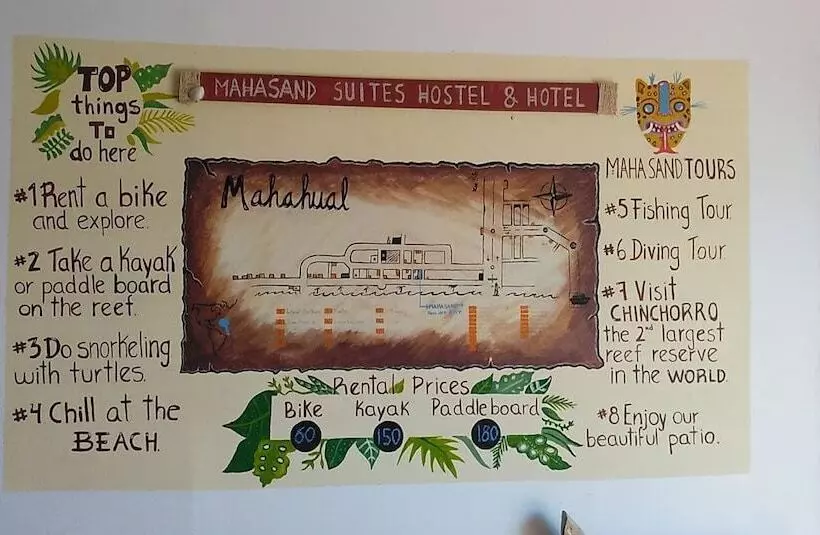 MAHASAND SUITES HOSTEL & HOTEL
TOP
things
To
do here
#1 Rent a bike
and explore.
#2 Take a Kayak
or paddle board
on the reef.
#3 Do snorkeling
with turtles.
#4 Chill at the
BEACH.
Mahahual
Rental Prices
Bike Kayak Paddleboard
60 150 180
MAHASAND TOURS
#5 Fishing Tour
#6 Diving Tour
#7 Visit
CHINCHORRO,
the 2nd largest
reef reserve
in the WORLD.
#8 Enjoy our
beautiful patio.